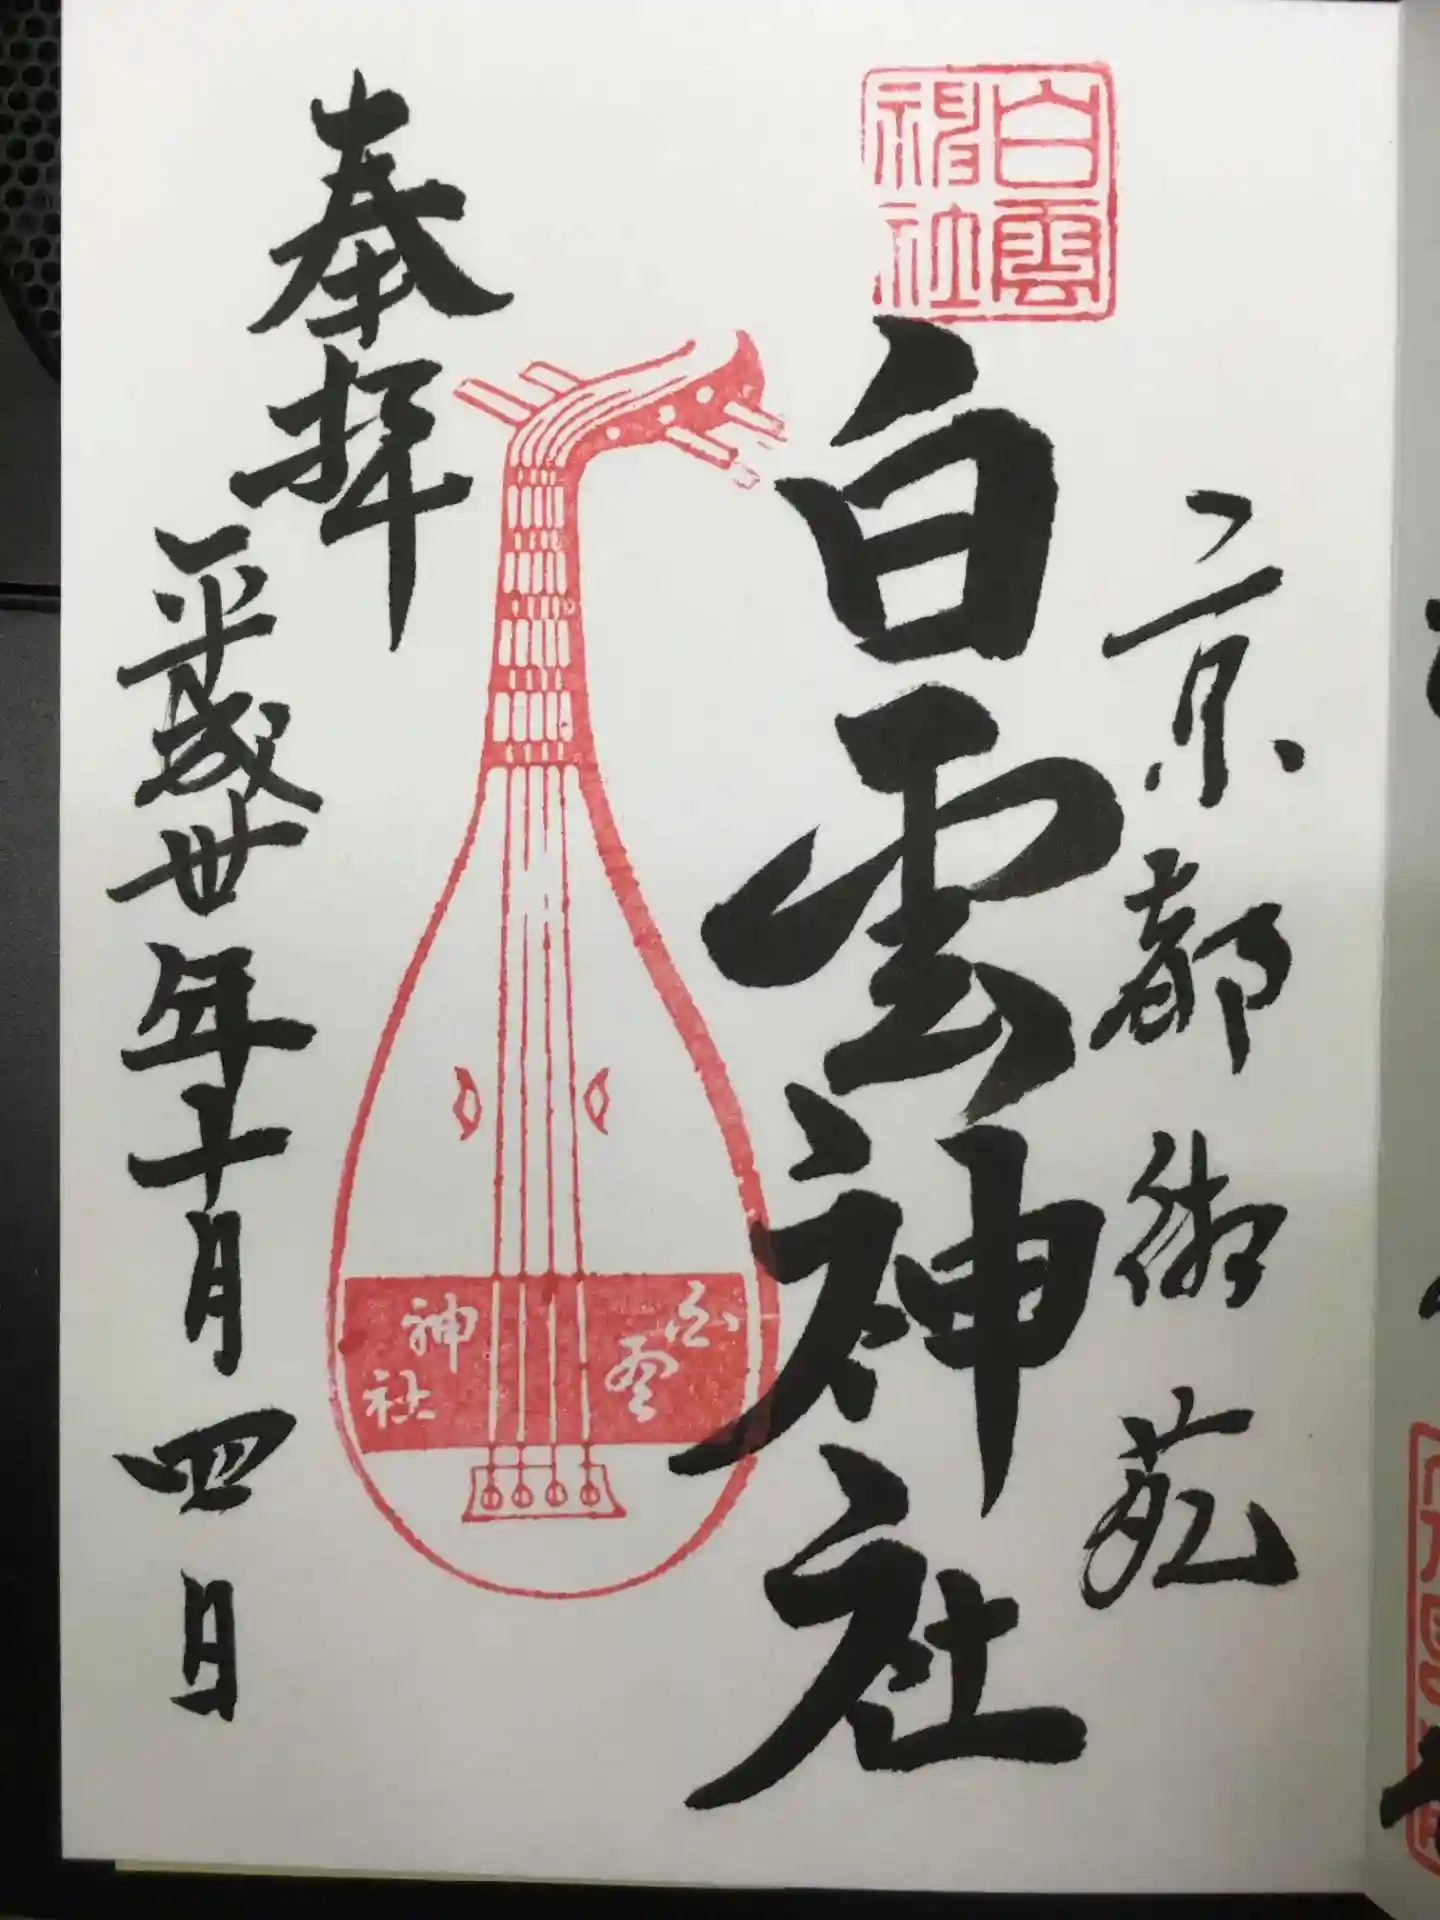 京都御苑
白雲
神社
白雲神社
白雲
神社
奉拝
平成卅年十月四日